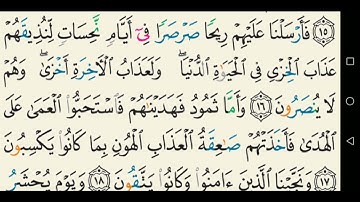 ١٥ فَأَرۡسَلۡنَا عَلَيۡهِمۡ رِيحٗا صَرۡصَرٗا فِيٓ أَيَّامٖ نَّحِسَاتٖ لِّنُذِيقَهُمۡ
عَذَابَ ٱلۡخِزۡيِ فِي ٱلۡحَيَوٰةِ ٱلدُّنۡيَاۖ وَلَعَذَابُ ٱلۡأٓخِرَةِ أَخۡزَىٰۖ وَهُمۡ
لَا يُنصَرُونَ ١٦ وَأَمَّا ثَمُودُ فَهَدَيۡنَٰهُمۡ فَٱسۡتَحَبُّواْ ٱلۡعَمَىٰ عَلَى
ٱلۡهُدَىٰ فَأَخَذَتۡهُمۡ صَٰعِقَةُ ٱلۡعَذَابِ ٱلۡهُونِ بِمَا كَانُواْ يَكۡسِبُونَ
١٧ وَنَجَّيۡنَا ٱلَّذِينَ ءَامَنُواْ وَكَانُواْ يَتَّقُونَ ١٨ وَيَوۡمَ يُحۡشَرُ